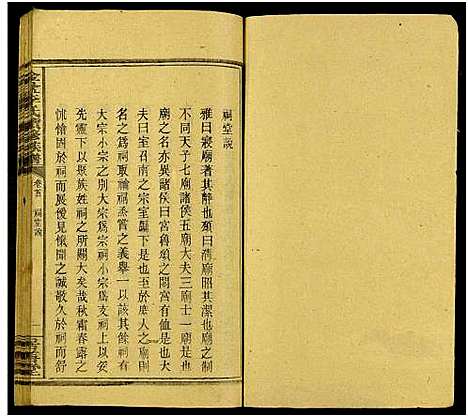 祠堂說
雅曰寢廟著其靜也頌曰清廟昭其潔也廟之制
不同天子七廟諸侯五廟大夫三廟士一廟是其
廟之名亦異諸侯曰廟魯之閟宮有侐是也大
夫曰室召南之宗室牖下是也至於庶人之廟則
名之爲祠取禴祠蒸嘗之義舉一以該其餘祠有
大宗小宗之別大宗爲宗祠小宗爲支祠上以妥
先靈下以聚族姓祠之所關大矣哉秋霜春露之
怵愴因於祠而展僾見愾聞之誠敬久於祠而舒
李氏 族譜
卷首 祠堂說
一